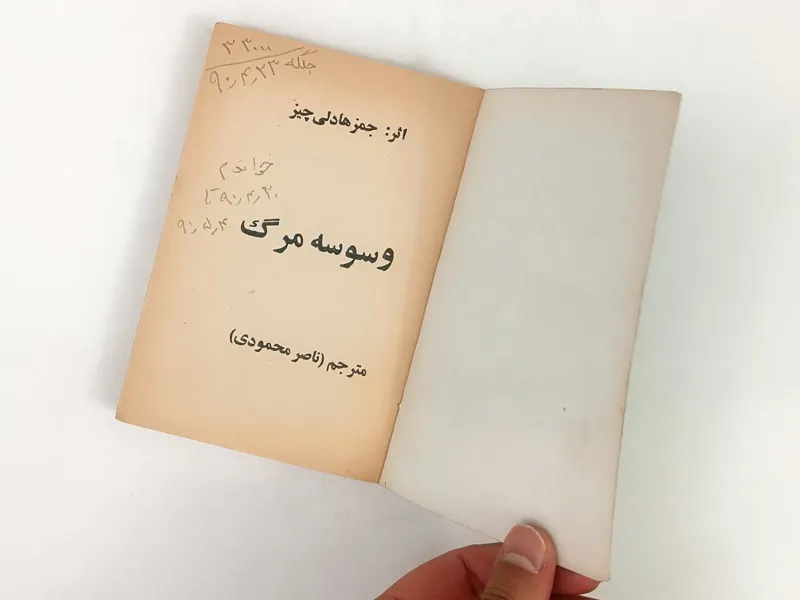 ۳ ۳۰۰۰
جگله ۹۰٫۴٫۲۳
اثر: جمزهادلی چیز
خواندم
۹۰٫۴٫۳۰ تا
۹۰٫۵٫۴
وسوسه مرگ
مترجم (ناصر محمودی)